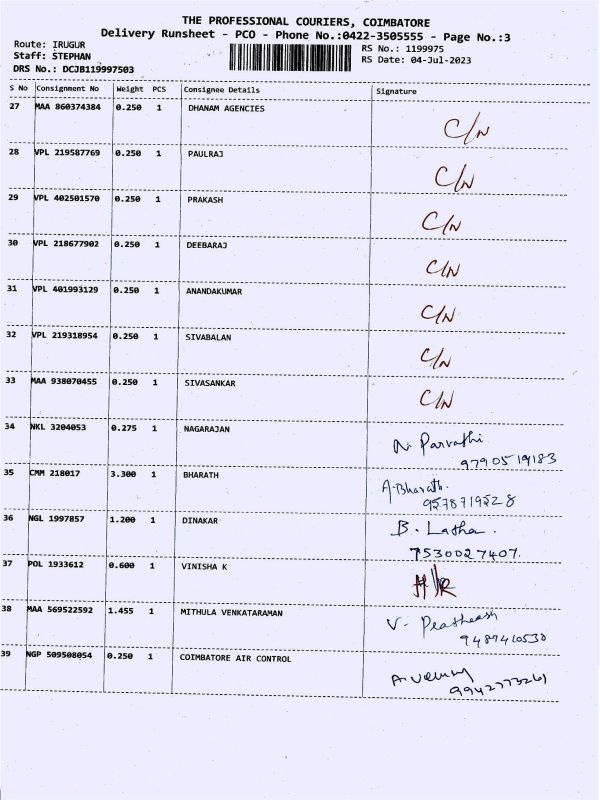 THE PROFESSIONAL COURIERS, COIMBATORE
Delivery Runsheet - PCO - Phone No.:0422-3505555 - Page No.:3
Route: IRUGUR
Staff: STEPHAN
DRS No.: DCJB119997503
RS No.: 1199975
RS Date: 04-Jul-2023
S No Consignment No Weight PCS Consignee Details Signature
27 MAA 860374384 0.250 1 DHANAM AGENCIES C/N
28 VPL 219587769 0.250 1 PAULRAJ C/N
29 VPL 402501570 0.250 1 PRAKASH C/N
30 VPL 218677902 0.250 1 DEEBARAJ C/N
31 VPL 401993129 0.250 1 ANANDAKUMAR C/N
32 VPL 219318954 0.250 1 SIVABALAN C/N
33 MAA 938070455 0.250 1 SIVASANKAR C/N
34 NKL 3204053 0.275 1 NAGARAJAN N. Parvathi
9790519183
35 CMM 218017 3.300 1 BHARATH A.Bharath.
9578719528
36 NGL 1997857 1.200 1 DINAKAR B. Latha.
7530027407.
37 POL 1933612 0.600 1 VINISHA K
38 MAA 569522592 1.455 1 MITHULA VENKATARAMAN V.
9487410530
39 NGP 509508054 0.250 1 COIMBATORE AIR CONTROL
9942773261